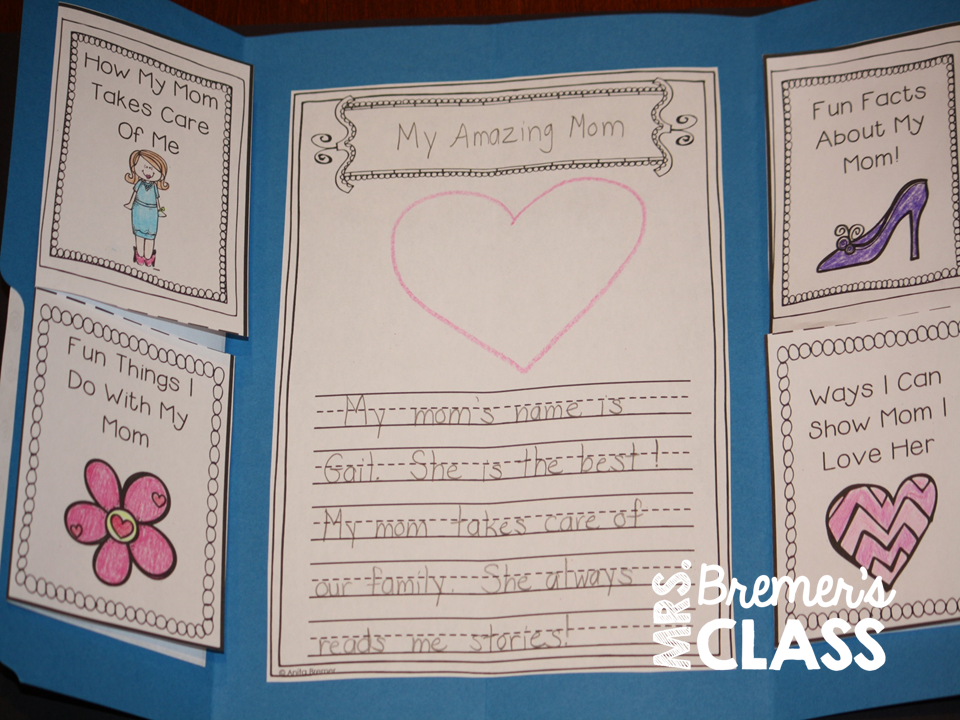 How My Mom
Takes Care
Of Me
Fun Things I
Do With My
Mom
My Amazing Mom
My mom's name is
Gail. She is the best!
My mom takes care of
our family. She always
reads me stories!
© Anita Bremer
Fun Facts
About My
Mom!
Ways I Can
Show Mom I
Love Her
MRS. Bremer's
CLASS